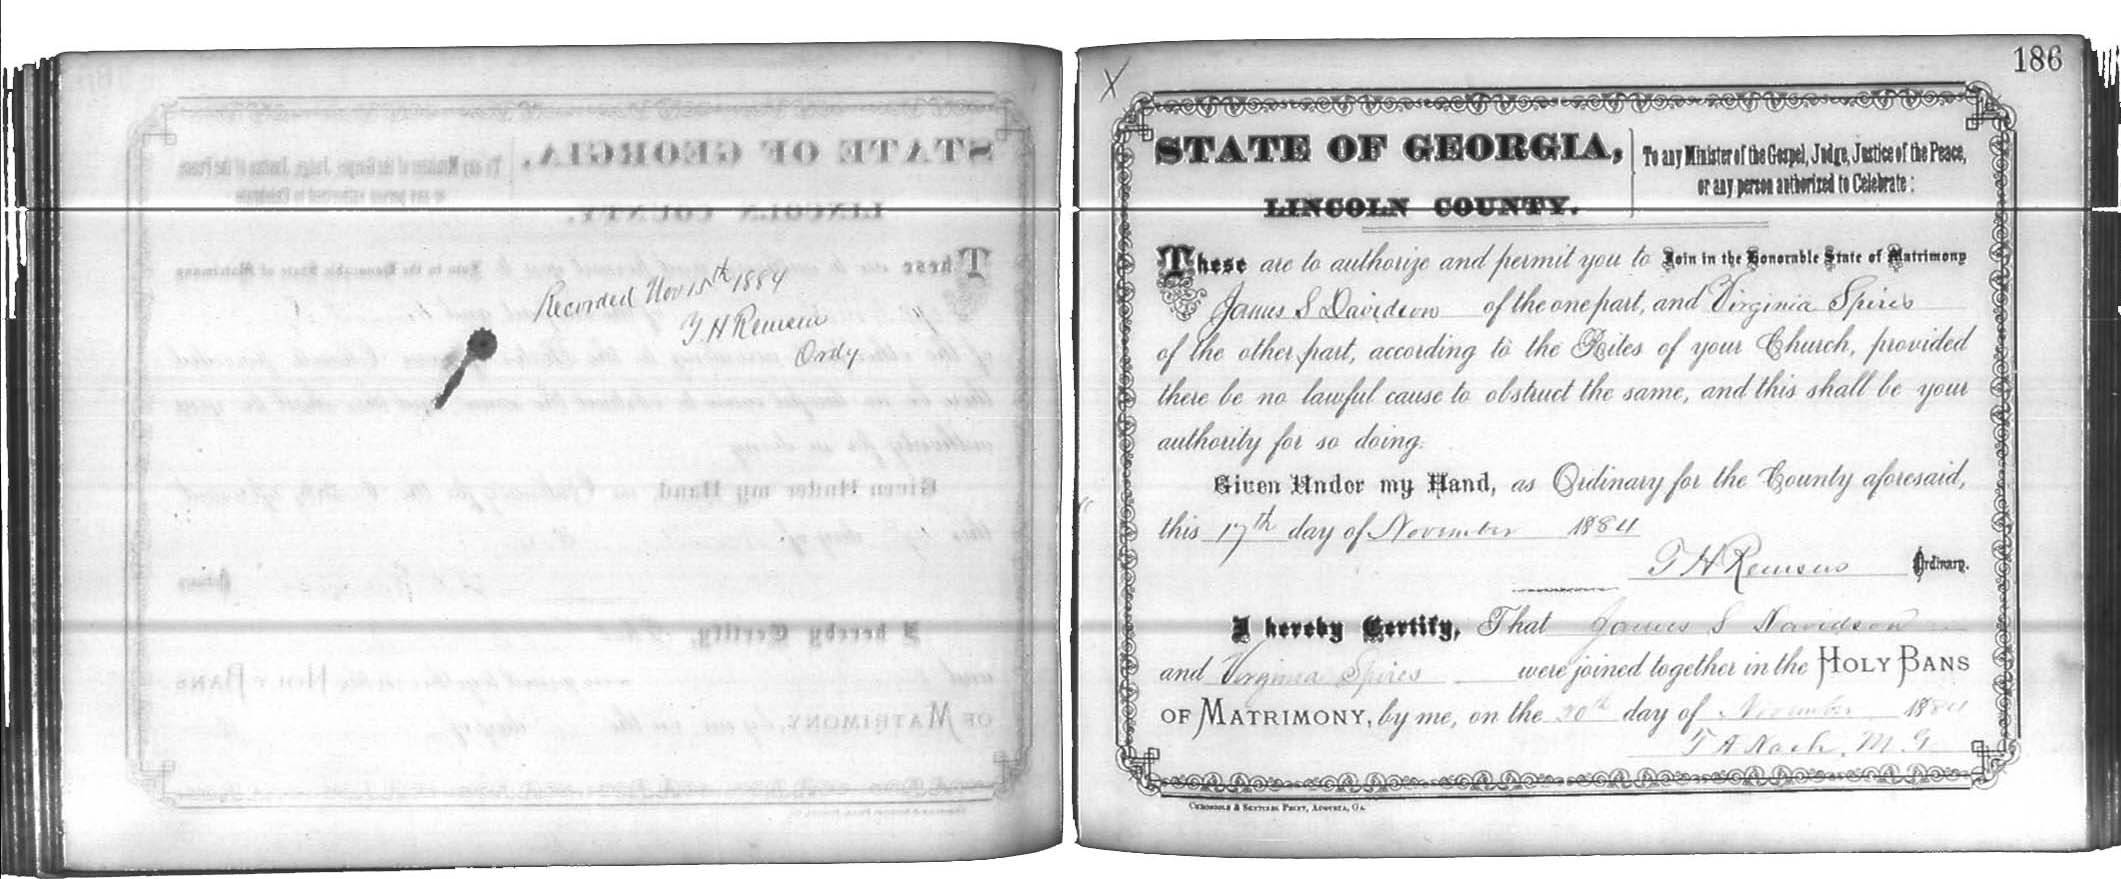 Recorded Nov 15th 1884
T. H Remsen
Ordy
186
X
STATE OF GEORGIA,
LINCOLN COUNTY.
To any Minister of the Gospel, Judge, Justice of the Peace,
or any person authorized to Celebrate:
These are to authorize and permit you to Join in the Honorable State of Matrimony
James S Davidson of the one part, and Virginia Spires
of the other part, according to the Rites of your Church, provided
there be no lawful cause to obstruct the same, and this shall be your
authority for so doing.
Given Under my Hand, as Ordinary for the County aforesaid,
this 17th day of November 1884
T H Remsen Ordinary.
I hereby Certify, That James S Davidson
and Virginia Spires were joined together in the HOLY BANS
OF MATRIMONY, by me, on the 20th day of November 1884
T A Nash, M. G
CHRONICLE & SENTINEL PRINT, AUGUSTA, GA.